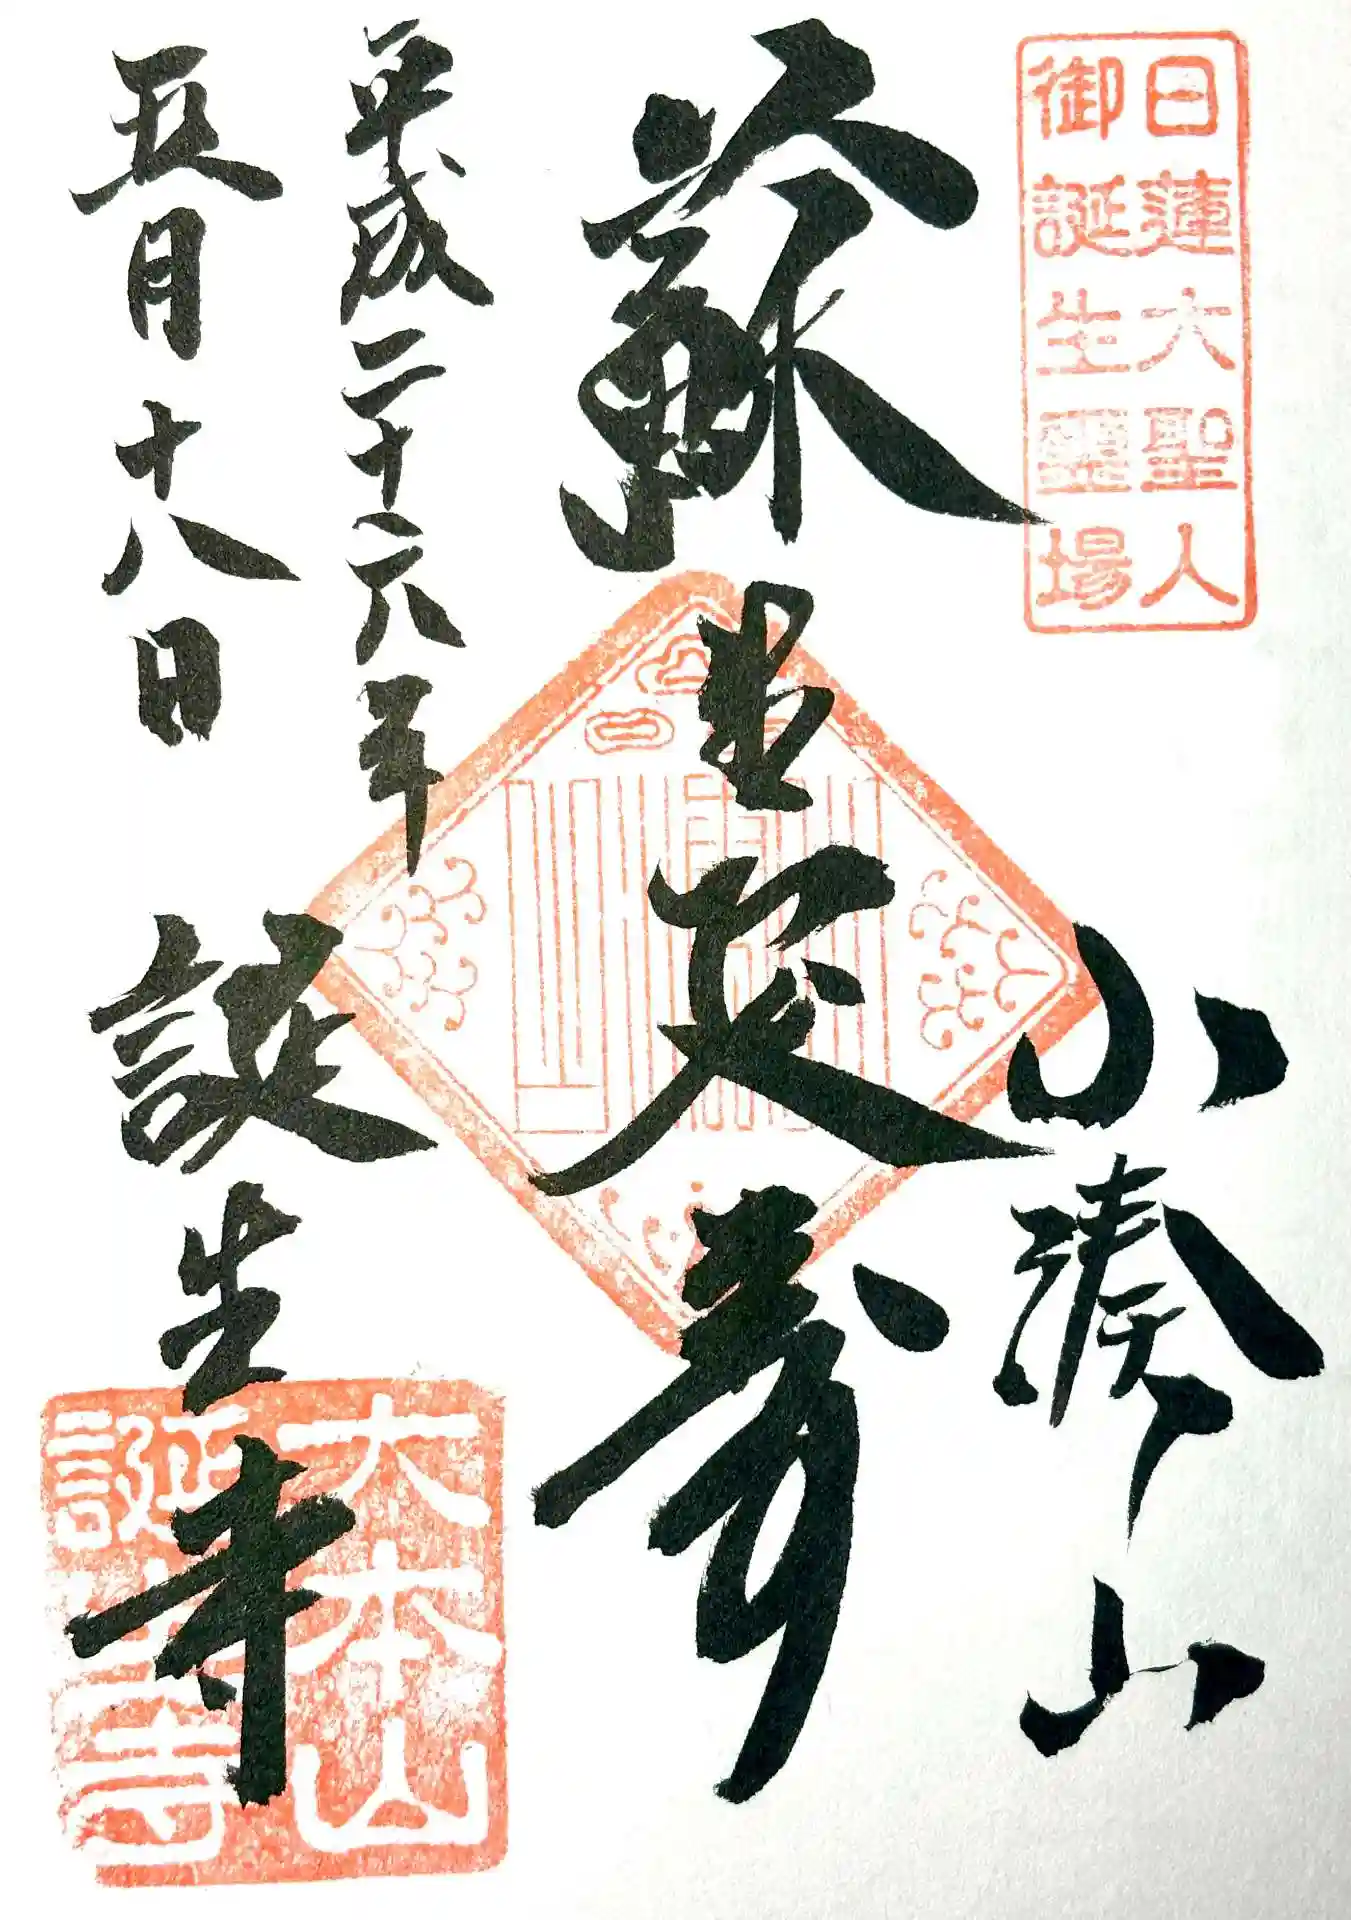 日蓮大聖人
御誕生霊場
小湊山
蘇生定寿
平成二十六年
五月十八日
誕生寺
大本山
誕生寺